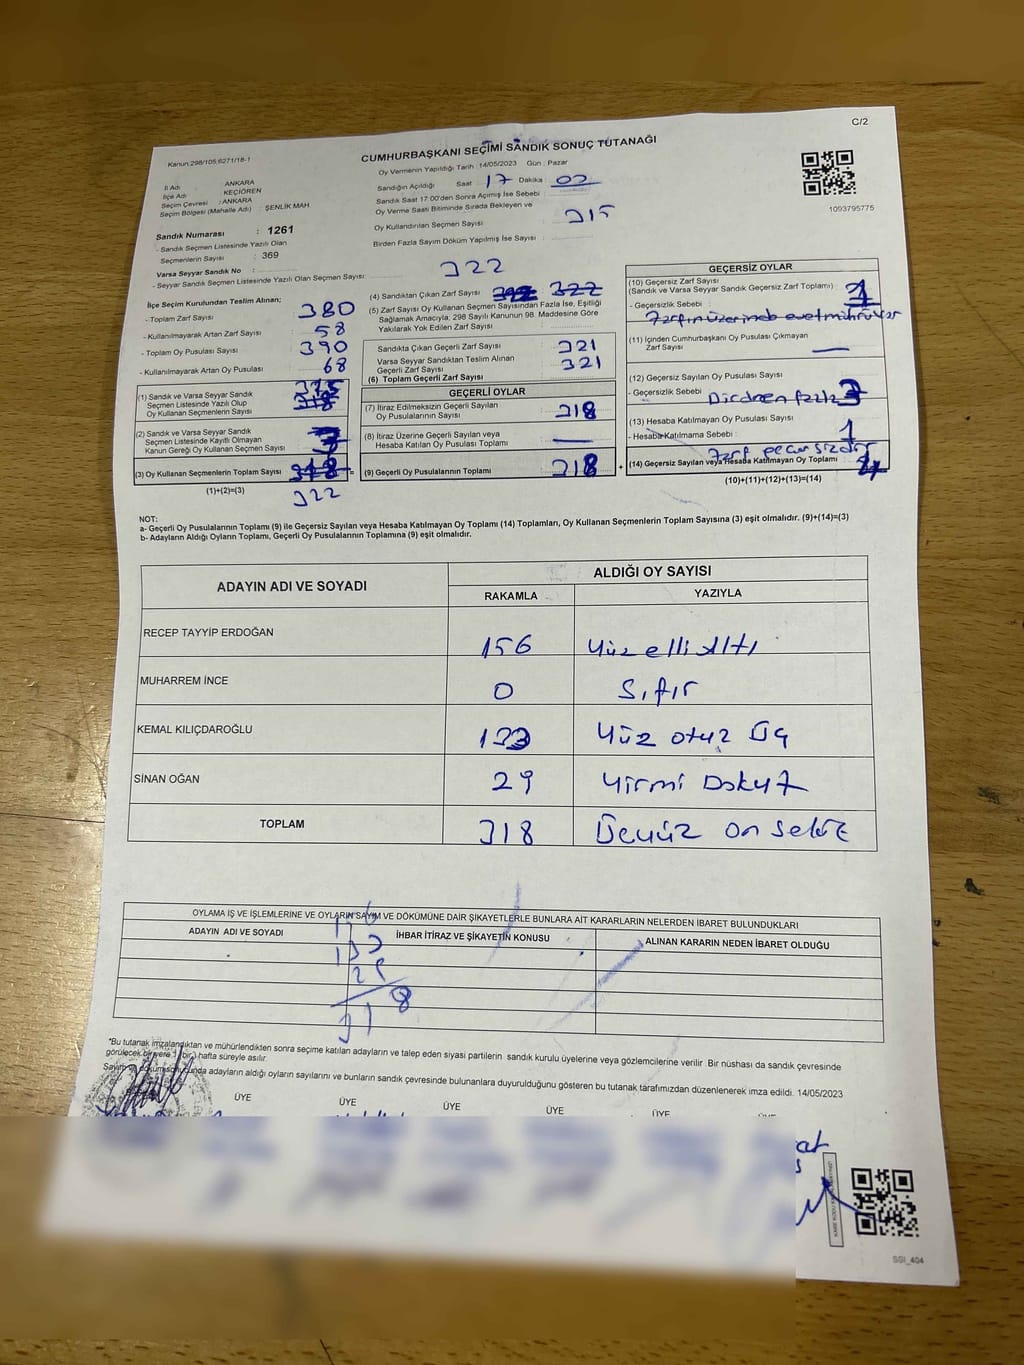 C/2
Kanun:298/105,6271/18-1
CUMHURBAŞKANI SEÇİMİ SANDIK SONUÇ TUTANAĞI
Oy Vermenin Yapıldığı Tarih : 14/05/2023 Gün : Pazar
İl Adı : ANKARA
İlçe Adı : KEÇİÖREN
Seçim Çevresi : ANKARA
Seçim Bölgesi (Mahalle Adı) : ŞENLİK MAH.
Sandığın Açıldığı Saat 17 Dakika 02
Sandık Saat 17:00'den Sonra Açılmış İse Sebebi :
Oy Verme Saati Bitiminde Sırada Bekleyen ve
Oy Kullandırılan Seçmen Sayısı : 315
Birden Fazla Sayım Döküm Yapılmış İse Sayısı :
1093795775
Sandık Numarası : 1261
- Sandık Seçmen Listesinde Yazılı Olan
Seçmenlerin Sayısı : 369
Varsa Seyyar Sandık No :
- Seyyar Seçmen Listesinde Yazılı Olan Seçmen Sayısı :
322
İlçe Seçim Kurulundan Teslim Alınan;
- Toplam Zarf Sayısı : 380
- Kullanılmayarak Artan Zarf Sayısı : 58
- Toplam Oy Pusulası Sayısı : 390
- Kullanılmayarak Artan Oy Pusulası : 68
(1) Sandık ve Varsa Seyyar Sandık
Seçmen Listesinde Yazılı Olup
Oy Kullanan Seçmenlerin Sayısı
(2) Sandık ve Varsa Seyyar Sandık
Seçmen Listesinde Kayıtlı Olmayan
Kanun Gereği Oy Kullanan Seçmen Sayısı
(3) Oy Kullanan Seçmenlerin Toplam Sayısı
(1)+(2)=(3)
322
(4) Sandıktan Çıkan Zarf Sayısı : 322
(5) Zarf Sayısı Oy Kullanan Seçmen Sayısından Fazla İse, Eşitliği
Sağlamak Amacıyla, 298 Sayılı Kanunun 98. Maddesine Göre
Yakılarak Yok Edilen Zarf Sayısı :
Sandıkta Çıkan Geçerli Zarf Sayısı : 321
Varsa Seyyar Sandıktan Teslim Alınan
Geçerli Zarf Sayısı :
(6) Toplam Geçerli Zarf Sayısı : 321
GEÇERLİ OYLAR
(7) İtiraz Edilmeksizin Geçerli Sayılan
Oy Pusulalarının Sayısı : 318
(8) İtiraz Üzerine Geçerli Sayılan veya
Hesaba Katılan Oy Pusulası Toplamı : —
(9) Geçerli Oy Pusulalarının Toplamı : 318
+
GEÇERSİZ OYLAR
(10) Geçersiz Zarf Sayısı
(Sandık ve Varsa Seyyar Sandık Geçersiz Zarf Toplamı) : 1
- Geçersizlik Sebebi :
Zarfın üzerinde evet mührü var
(11) İçinden Cumhurbaşkanı Oy Pusulası Çıkmayan
Zarf Sayısı : —
(12) Geçersiz Sayılan Oy Pusulası Sayısı :
- Geçersizlik Sebebi : Birden fazla 3
(13) Hesaba Katılmayan Oy Pusulası Sayısı : 1
- Hesaba Katılmama Sebebi :
Zarf geçersizdir
(14) Geçersiz Sayılan veya Hesaba Katılmayan Oy Toplamı : 4
(10)+(11)+(12)+(13)=(14)
NOT:
a- Geçerli Oy Pusulalarının Toplamı (9) ile Geçersiz Sayılan veya Hesaba Katılmayan Oy Toplamı (14) Toplamları, Oy Kullanan Seçmenlerin Toplam Sayısına (3) eşit olmalıdır. (9)+(14)=(3)
b- Adayların Aldığı Oyların Toplamı, Geçerli Oy Pusulalarının Toplamına (9) eşit olmalıdır.
ADAYIN ADI VE SOYADI
ALDIĞI OY SAYISI
RAKAMLA YAZIYLA
RECEP TAYYİP ERDOĞAN 156 Yüz elli Altı
MUHARREM İNCE 0 Sıfır
KEMAL KILIÇDAROĞLU 133 Yüz otuz Üç
SİNAN OĞAN 29 Yirmi Dokuz
TOPLAM 318 Üçyüz on sekiz
OYLAMA İŞ VE İŞLEMLERİNE VE OYLARIN SAYIM VE DÖKÜMÜNE DAİR ŞİKAYETLERLE BUNLARA AİT KARARLARIN NELERDEN İBARET BULUNDUKLARI
ADAYIN ADI VE SOYADI İHBAR İTİRAZ VE ŞİKAYETİN KONUSU ALINAN KARARIN NEDEN İBARET OLDUĞU
133
29
318
*Bu tutanak imzalandıktan ve mühürlendikten sonra seçime katılan adayların ve talep eden siyasi partilerin sandık kurulu üyelerine veya gözlemcilerine verilir. Bir nüshası da sandık çevresinde
görülecek bir yere 1 (bir) hafta süreyle asılır.
Sayım ve döküm sonucunda adayların aldığı oyların sayılarını ve bunların sandık çevresinde bulunanlara duyurulduğunu gösteren bu tutanak tarafımızdan düzenlenerek imza edildi. 14/05/2023
ÜYE ÜYE ÜYE ÜYE ÜYE ÜYE
SGI_404